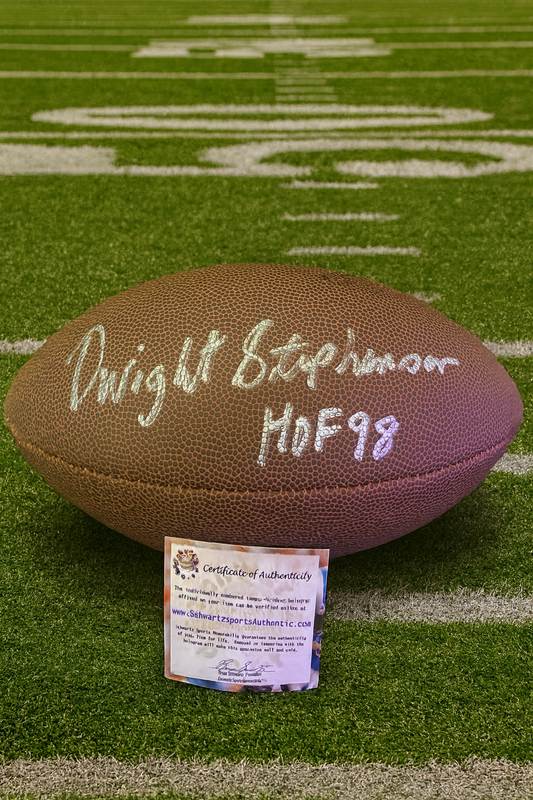 Dwight Stephenson
HOF 98
Certificate of Authenticity
The individually numbered tamper
affixed on your item can be verified online at
www.SchwartzsportsAuthentic.com
Schwartz Sports Memorabilia Guarantees the authenticity
of your item for life. Removal or tampering with the
hologram will make this guarantee null and void.